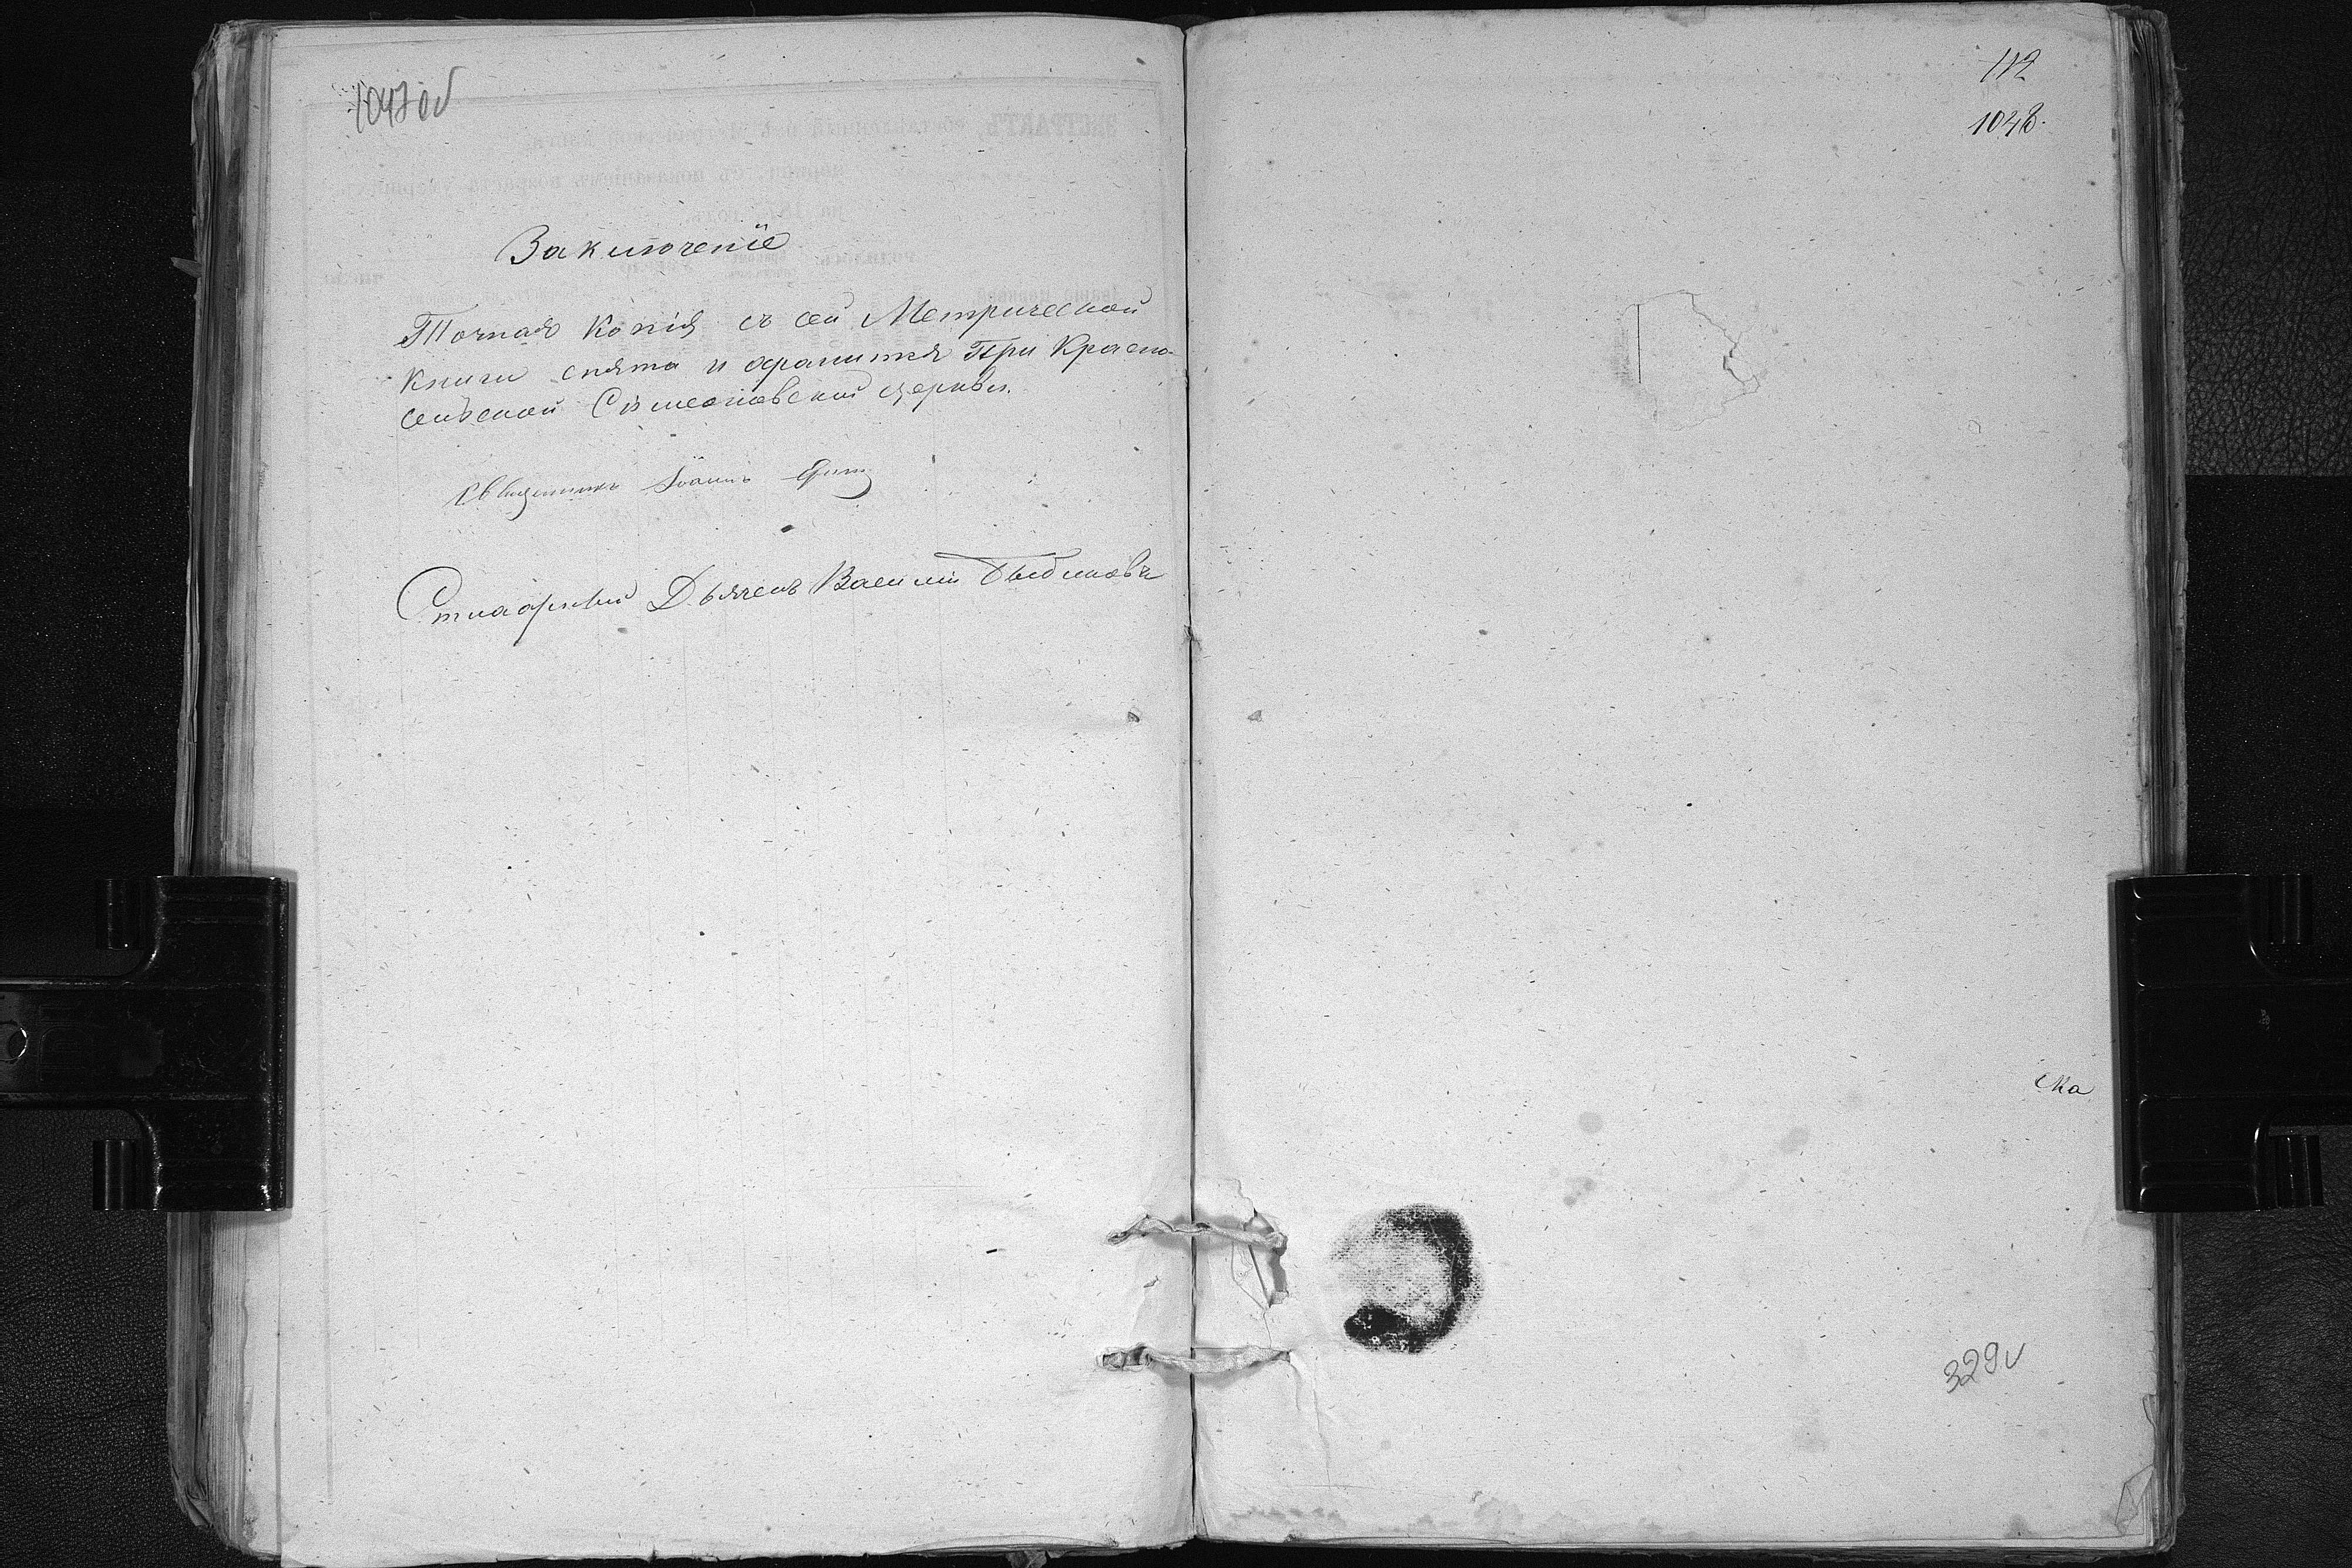 1047 об
Заключеніе
Точная Копія съ сей Метрической
книги снята и хранится При Красно-
сельской Симеоновской церкви.
Священникъ Іоаннъ
Стихарный Дьячекъ Василій
112
1048.
ска
329